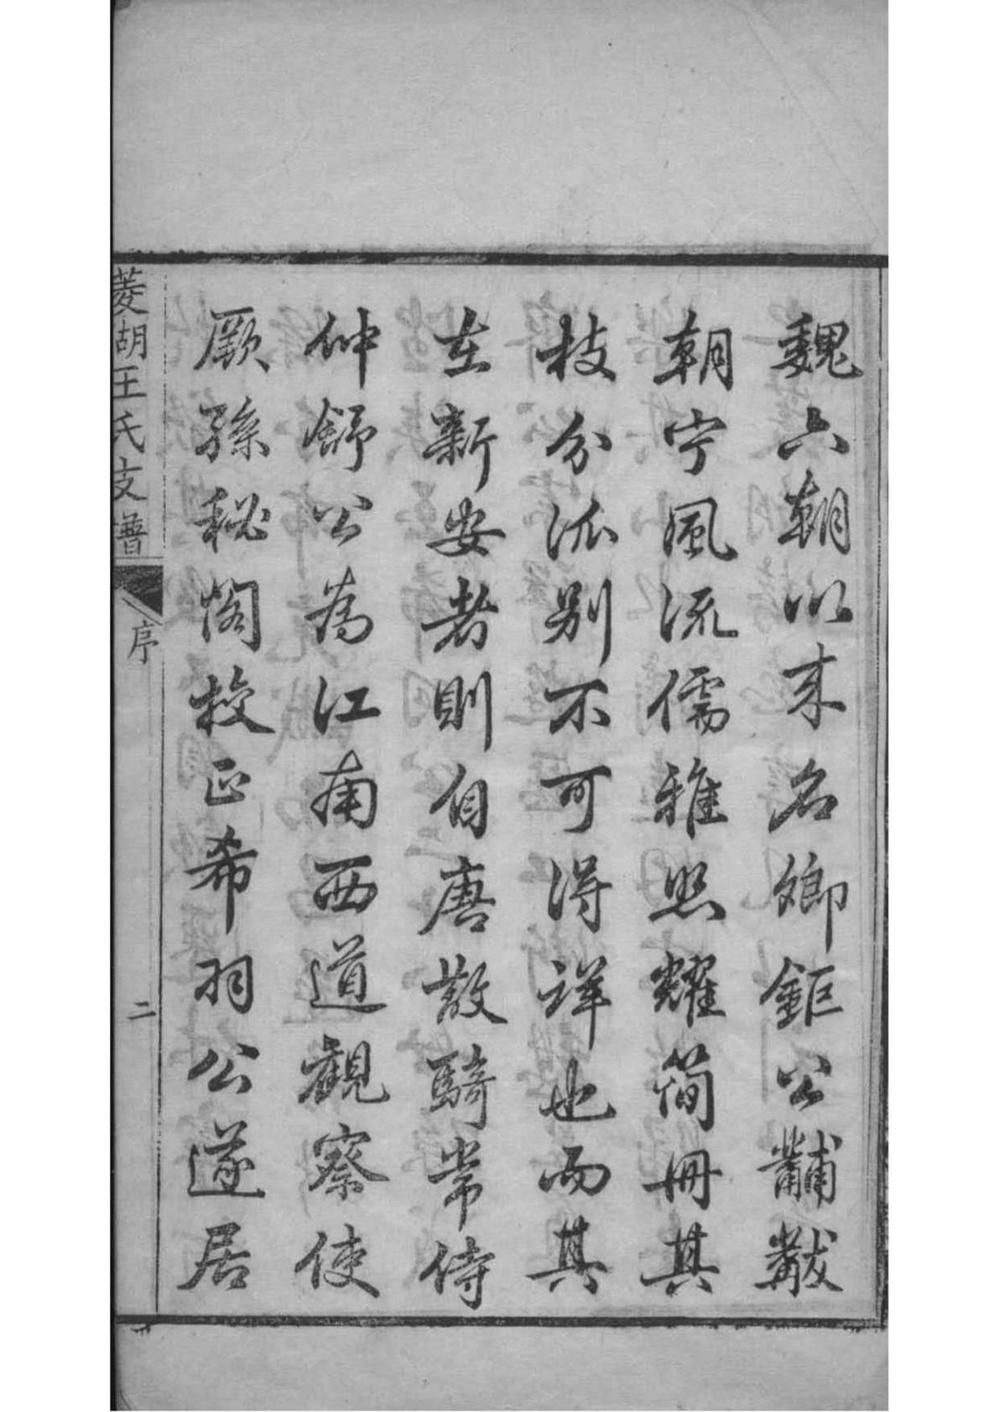 魏六朝以来名卿鉅公黼黻
朝宁風流儒雅照耀簡冊其
枝分派别不可得詳也而其
在新安者則自唐散騎常侍
仲舒公為江南西道觀察使
厥孫秘閣校正希羽公遂居
菱湖王氏支譜
序
二